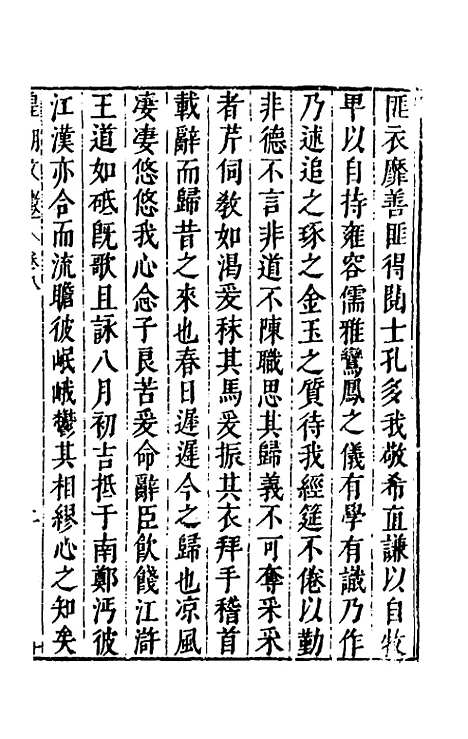 匪衣靡善匪得閱士孔多我敬希直謙以自牧
卑以自持雍容儒雅鸞鳳之儀有學有識乃作
乃述追之琢之金玉之質待我經筵不倦以勤
非德不言非道不陳職思其歸義不可奪采采
者芹伺教如渴爰秣其馬爰振其衣拜手稽首
載辭而歸昔之來也春日遲遲今之歸也凉風
凄凄悠悠我心念子良苦爰命辭臣飲餞江滸
王道如砥既歌且詠八月初吉抵于南鄭沔彼
江漢亦合而流瞻彼岷峨鬱其相繆心之知矣
皇明文 卷八 二